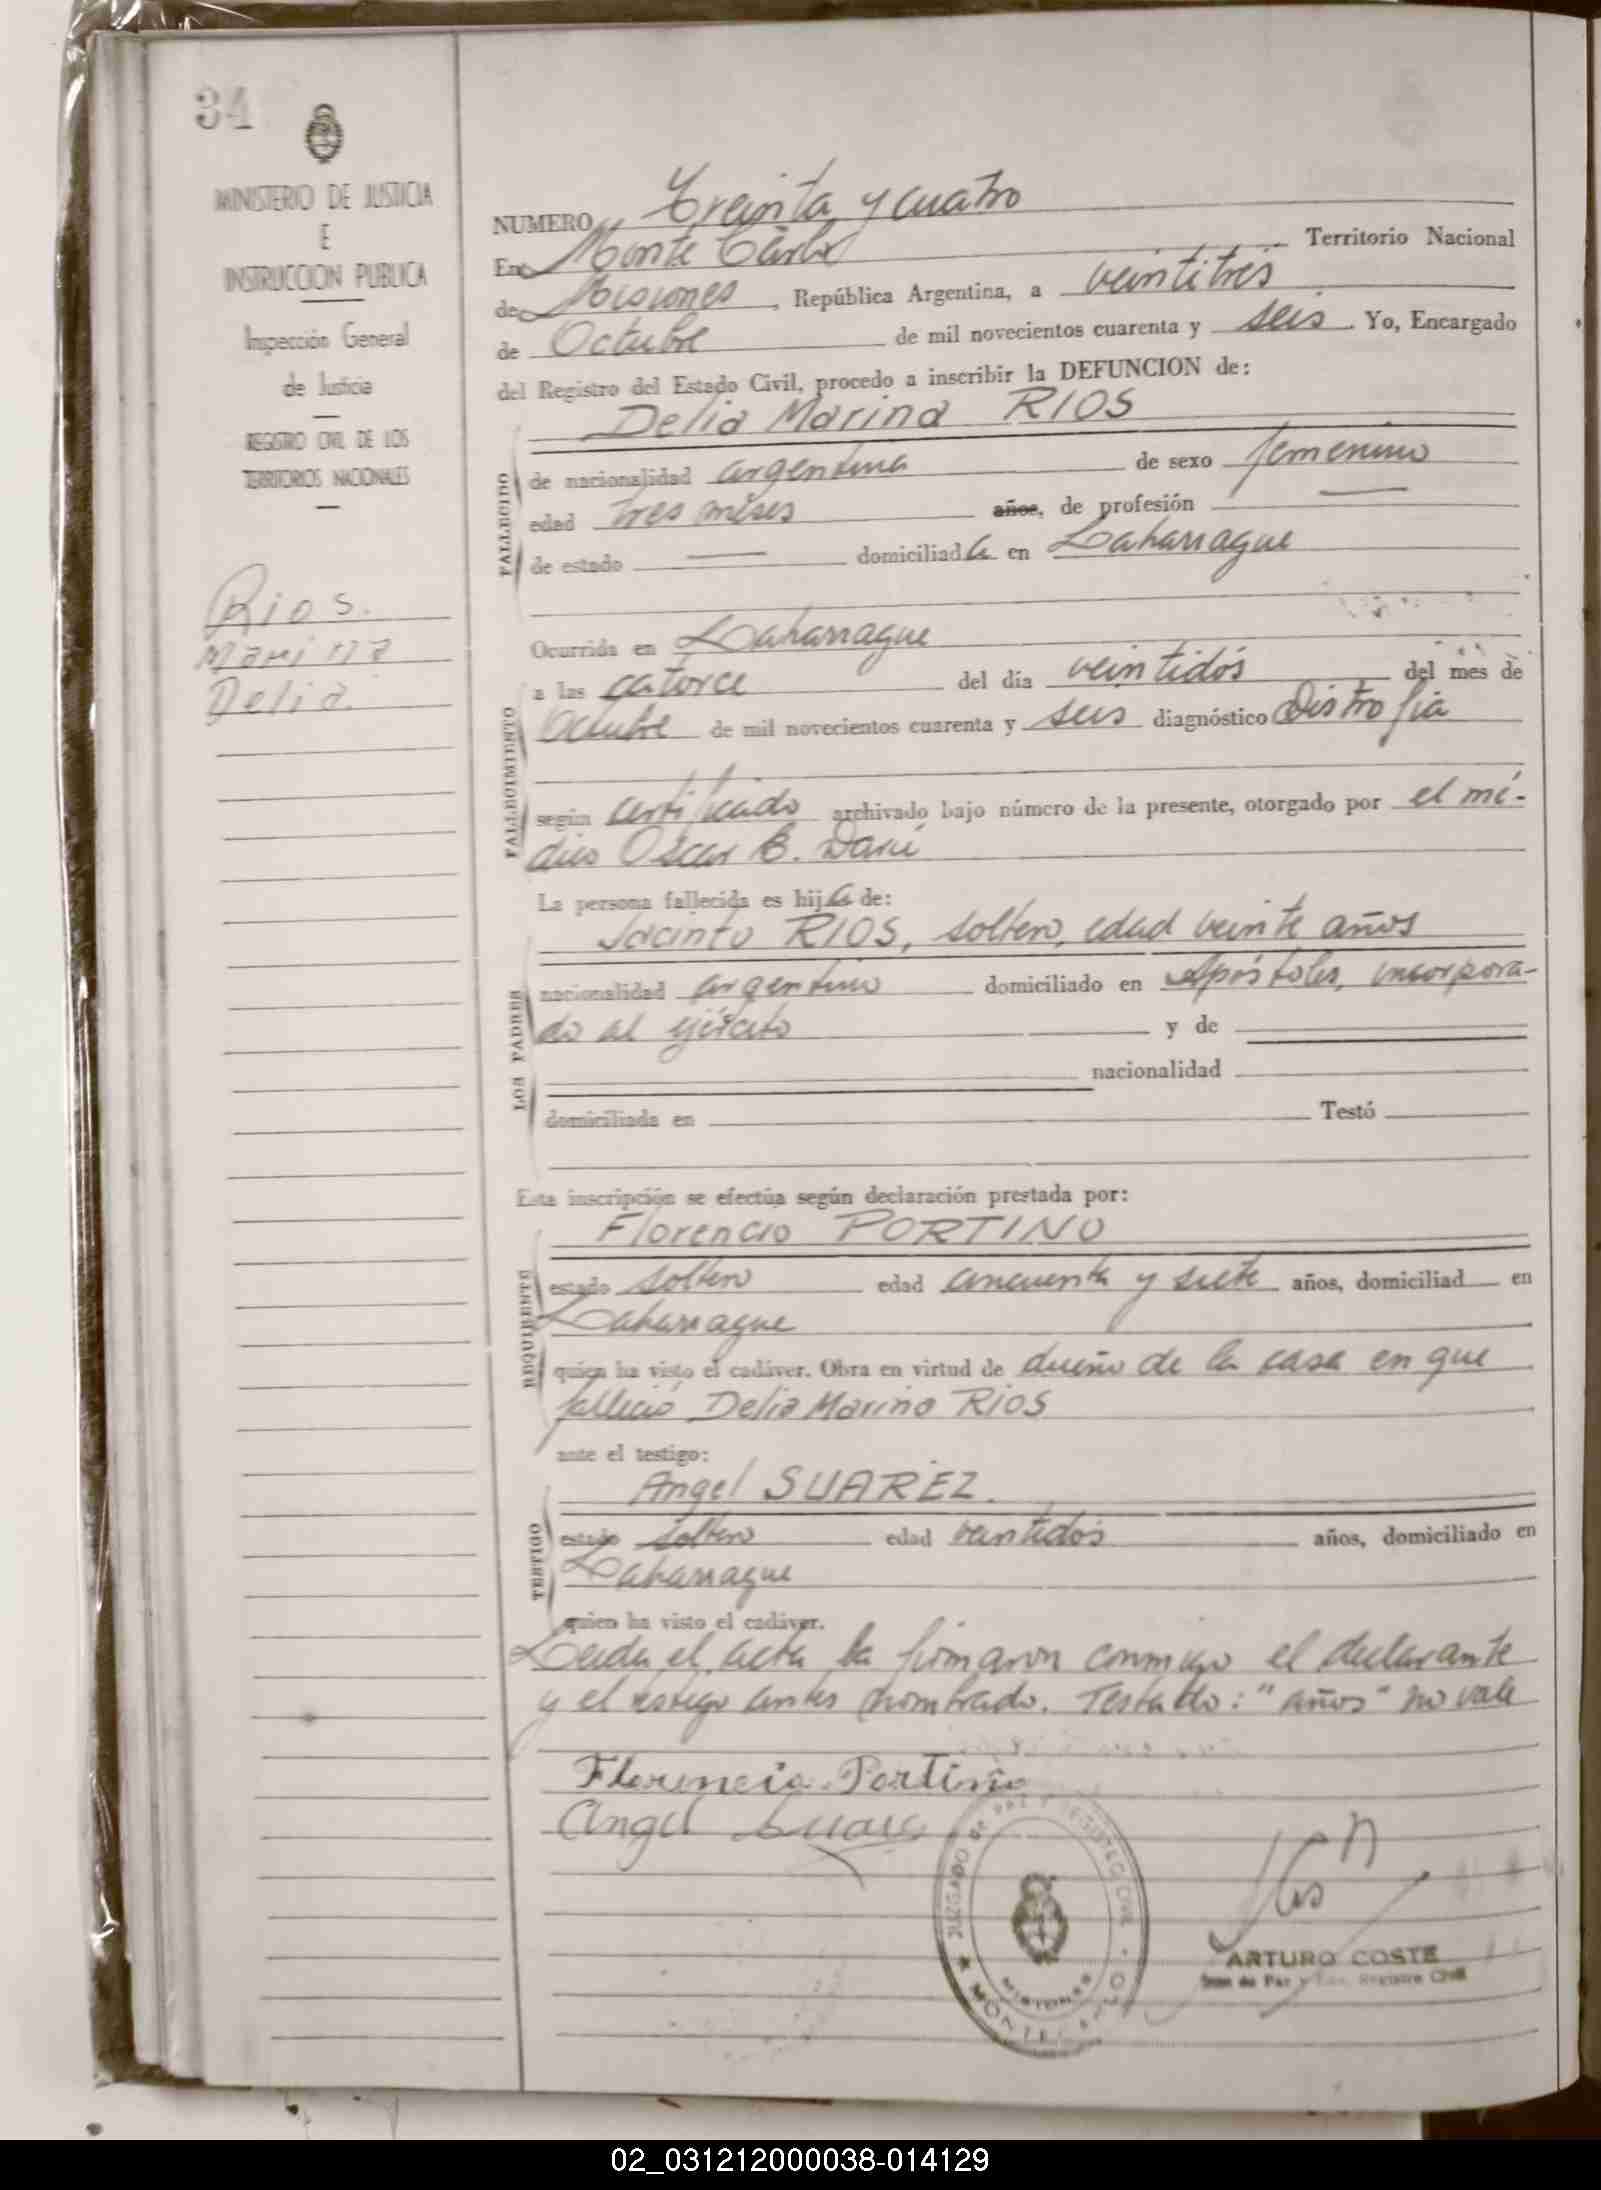 34
MINISTERIO DE JUSTICIA
E
INSTRUCCION PUBLICA
Inspección General
de Justicia
REGISTRO CIVIL DE LOS
TERRITORIOS NACIONALES
Rios.
Marina
Delia.
NUMERO Treinta y cuatro
En Monte Carlo Territorio Nacional
de Misiones, República Argentina, a veintitres
de Octubre de mil novecientos cuarenta y seis. Yo, Encargado
del Registro del Estado Civil, procedo a inscribir la DEFUNCION de:
Delia Marina RIOS
FALLECIDO
de nacionalidad argentina de sexo femenino
edad tres meses años, de profesión —
de estado — domiciliada en Laharrague
FALLECIMIENTO
Ocurrida en Laharrague
a las catorce del día veintidós del mes de
Octubre de mil novecientos cuarenta y seis diagnóstico Distrofia
según certificado archivado bajo número de la presente, otorgado por el mé-
dico Oscar B. Darú
La persona fallecida es hija de:
LOS PADRES
Jacinto RIOS, soltero, edad veinte años
nacionalidad argentino domiciliado en Apóstoles, incorpora-
do al ejército — y de
nacionalidad
domiciliada en Testó
Esta inscripción se efectúa según declaración prestada por:
REQUIRENTE
Florencio PORTINO
estado soltero edad cincuenta y siete años, domiciliad en
Laharrague
quien ha visto el cadáver. Obra en virtud de dueño de la casa en que
falleció Delia Marina RIOS
ante el testigo:
TESTIGO
Angel SUAREZ.
estado soltero edad veintidós años, domiciliado en
Laharrague
quien ha visto el cadáver.
Leída el acta la firmaron conmigo el declarante
y el testigo antes nombrado. Testado: "años" no vale
Florencio Portino
Angel Suarez
JUZGADO DE PAZ Y REGISTRO CIVIL
MISIONES
★ MONTE CARLO
ARTURO COSTE
Juez de Paz y Enc. Registro Civil
02_031212000038-014129